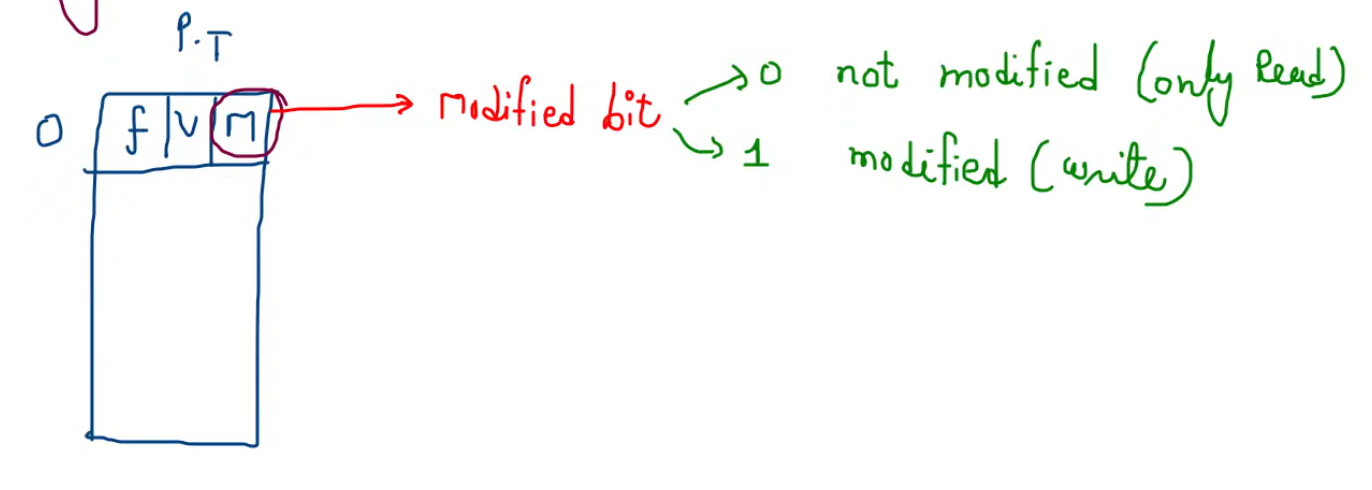 P.T
0 f V M → modified bit
→ 0 not modified (only Read)
→ 1 modified (write)